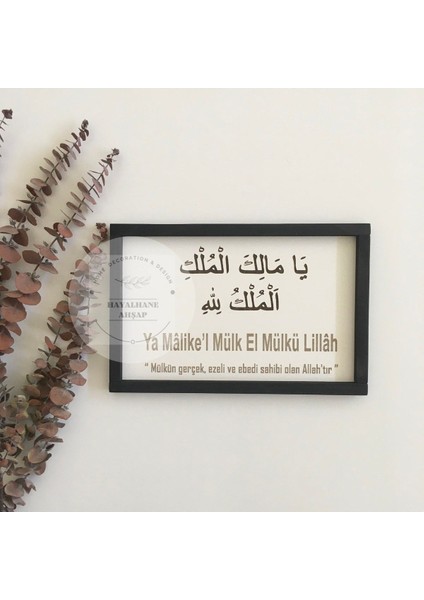 يَا مَالِكَ الْمُلْكِ
اَلْمُلْكُ لِلّٰهِ
Ya Mâlike'l Mülk El Mülkü Lillâh
" Mülkün gerçek, ezeli ve ebedî sahibi olan Allah'tır "
HOME DECORATION & DESIGN
HAYALHANE
AHŞAP